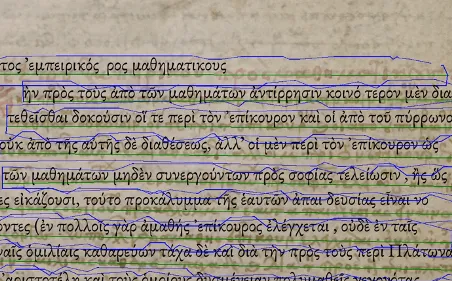 τος ʼεμπειρικός ρος μαθηματικους
ὴν πρὸς τοὺς ἀπὸ τῶν μαθημάτων ἀντίρρησιν κοινό τερον μὲν δια
τεθεῖσθαι δοκοῦσιν οἵ τε περὶ τὸν ʼεπίκουρον καὶ οἱ ἀπὸ τοῦ πύρρωνο
οὐκ ἀπὸ τῆς αὐτῆς δὲ διαθέσεως, ἀλλʼ οἱ μὲν περὶ τὸν ʼεπίκουρον ὡς
τῶν μαθημάτων μηδὲν συνεργούντων πρὸς σοφίας τελείωσιν, ἤς ὥς
ες εἰκάζουσι, τοῦτο προκάλυμμα τῆς ἑαυτῶν ἀπαι δευσίας εἶναι νο
οντες (ἐν πολλοῖς γὰρ ἀμαθὴς ʼεπίκουρος ἐλέγχεται, οὐδὲ ἐν ταῖς
ναῖς ὁμιλίαις καθαρεύων τάχα δὲ καὶ διὰ τὴν πρὸς τοὺς περὶ Πλάτωνα
ʼαριστοτέλη καὶ τοὺς ὁμοίους δυσμένειαν πολυμαθεῖς γεγονότας